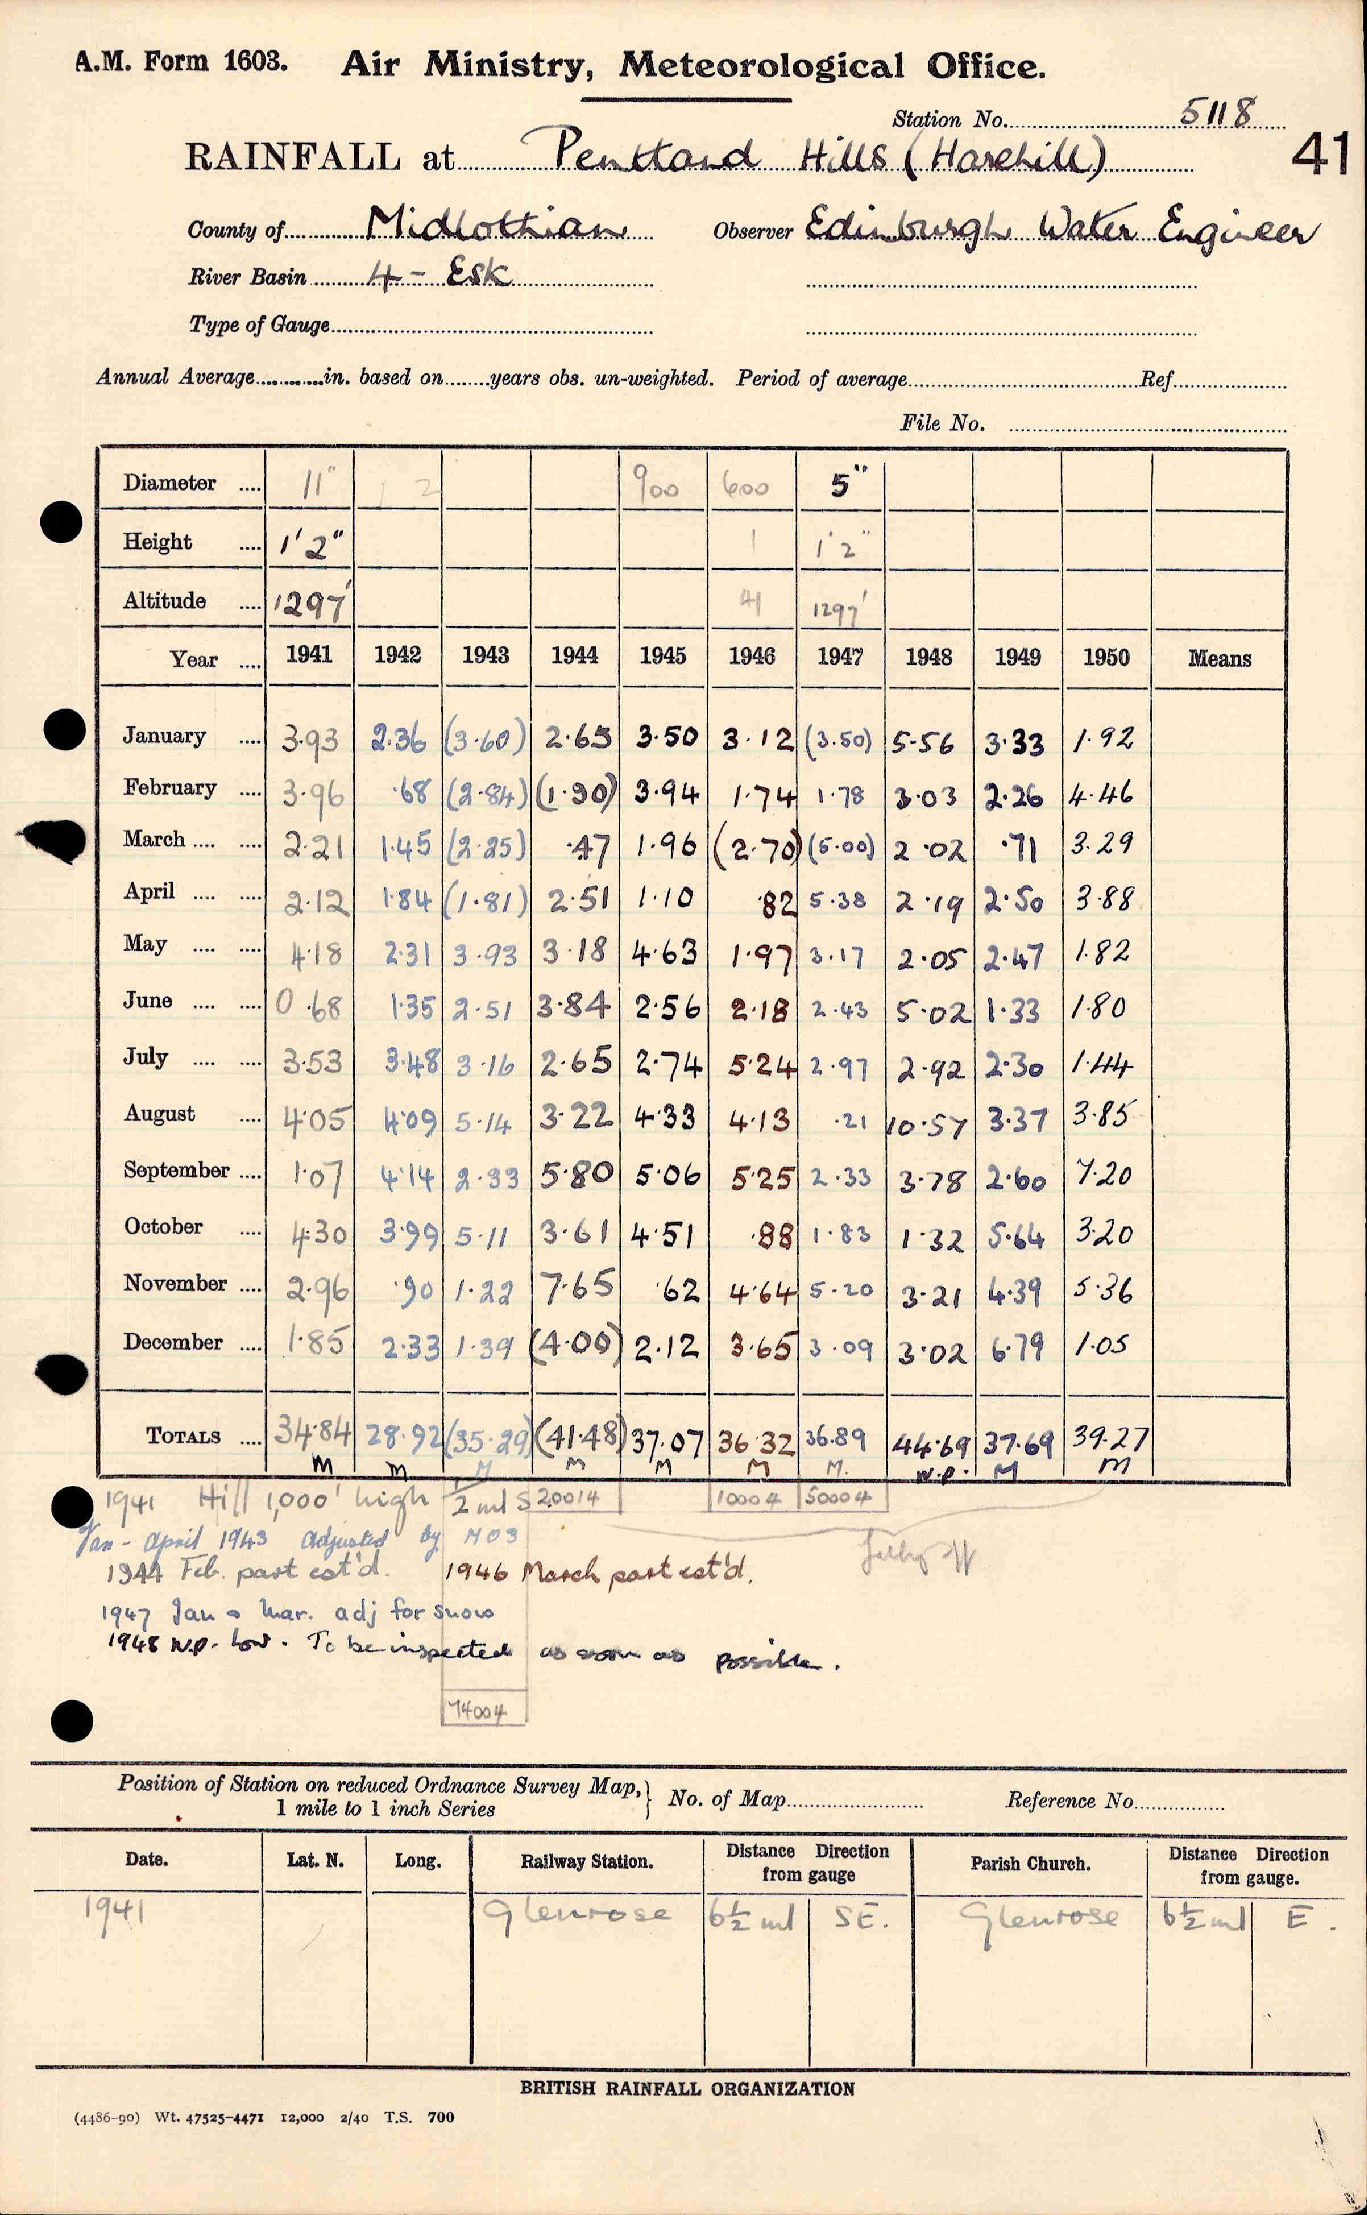 A.M. Form 1603. Air Ministry, Meteorological Office.
Station No. 5118
RAINFALL at Pentland Hills (Harehill) 41
County of Midlothian Observer Edinburgh Water Engineer
River Basin 4 - Esk
Type of Gauge
Annual Average in. based on years obs. un-weighted. Period of average Ref
File No.
Diameter 11" 12 900 600 5"
Height 1'2" 1 1'2"
Altitude 1297' 41 1297'
Year 1941 1942 1943 1944 1945 1946 1947 1948 1949 1950 Means
January 3.93 2.36 (3.60) 2.65 3.50 3.12 (3.50) 5.56 3.33 1.92
February 3.96 .68 (2.84) (1.90) 3.94 1.74 1.78 3.03 2.26 4.46
March 2.21 1.45 (2.25) .47 1.96 (2.70) (5.00) 2.02 .71 3.29
April 2.12 1.84 (1.81) 2.51 1.10 .82 5.38 2.19 2.50 3.88
May 4.18 2.31 3.93 3.18 4.63 1.97 3.17 2.05 2.47 1.82
June 0.68 1.35 2.51 3.84 2.56 2.18 2.43 5.02 1.33 1.80
July 3.53 3.48 3.16 2.65 2.74 5.24 2.97 2.92 2.30 1.44
August 4.05 4.09 5.14 3.22 4.33 4.13 .21 10.57 3.37 3.85
September 1.07 4.14 2.33 5.80 5.06 5.25 2.33 3.78 2.60 7.20
October 4.30 3.99 5.11 3.61 4.51 .88 1.83 1.32 5.64 3.20
November 2.96 .90 1.22 7.65 .62 4.64 5.20 3.21 4.39 5.36
December 1.85 2.33 1.39 (4.00) 2.12 3.65 3.09 3.02 6.79 1.05
TOTALS 34.84 28.92 (35.29) (41.48) 37.07 36.32 36.89 44.69 37.69 39.27
M M M M M M M. W.P. M M
1941 Hill 1,000' high 1/2 ml S 20014 10004 50004
Jan - April 1943 adjusted by MO3
1944 Feb. part est'd. 1946 March part est'd.
1947 Jan & Mar. adj for snow
1948 W.P. low. To be inspected as soon as possible.
74004
Position of Station on reduced Ordnance Survey Map, 1 mile to 1 inch Series } No. of Map Reference No.
Date. Lat. N. Long. Railway Station. Distance Direction from gauge Parish Church. Distance Direction from gauge.
1941 Glenrose 6½ ml SE. Glenrose 6½ ml E.
BRITISH RAINFALL ORGANIZATION
(4486-90) Wt. 47525-4471 12,000 2/40 T.S. 700